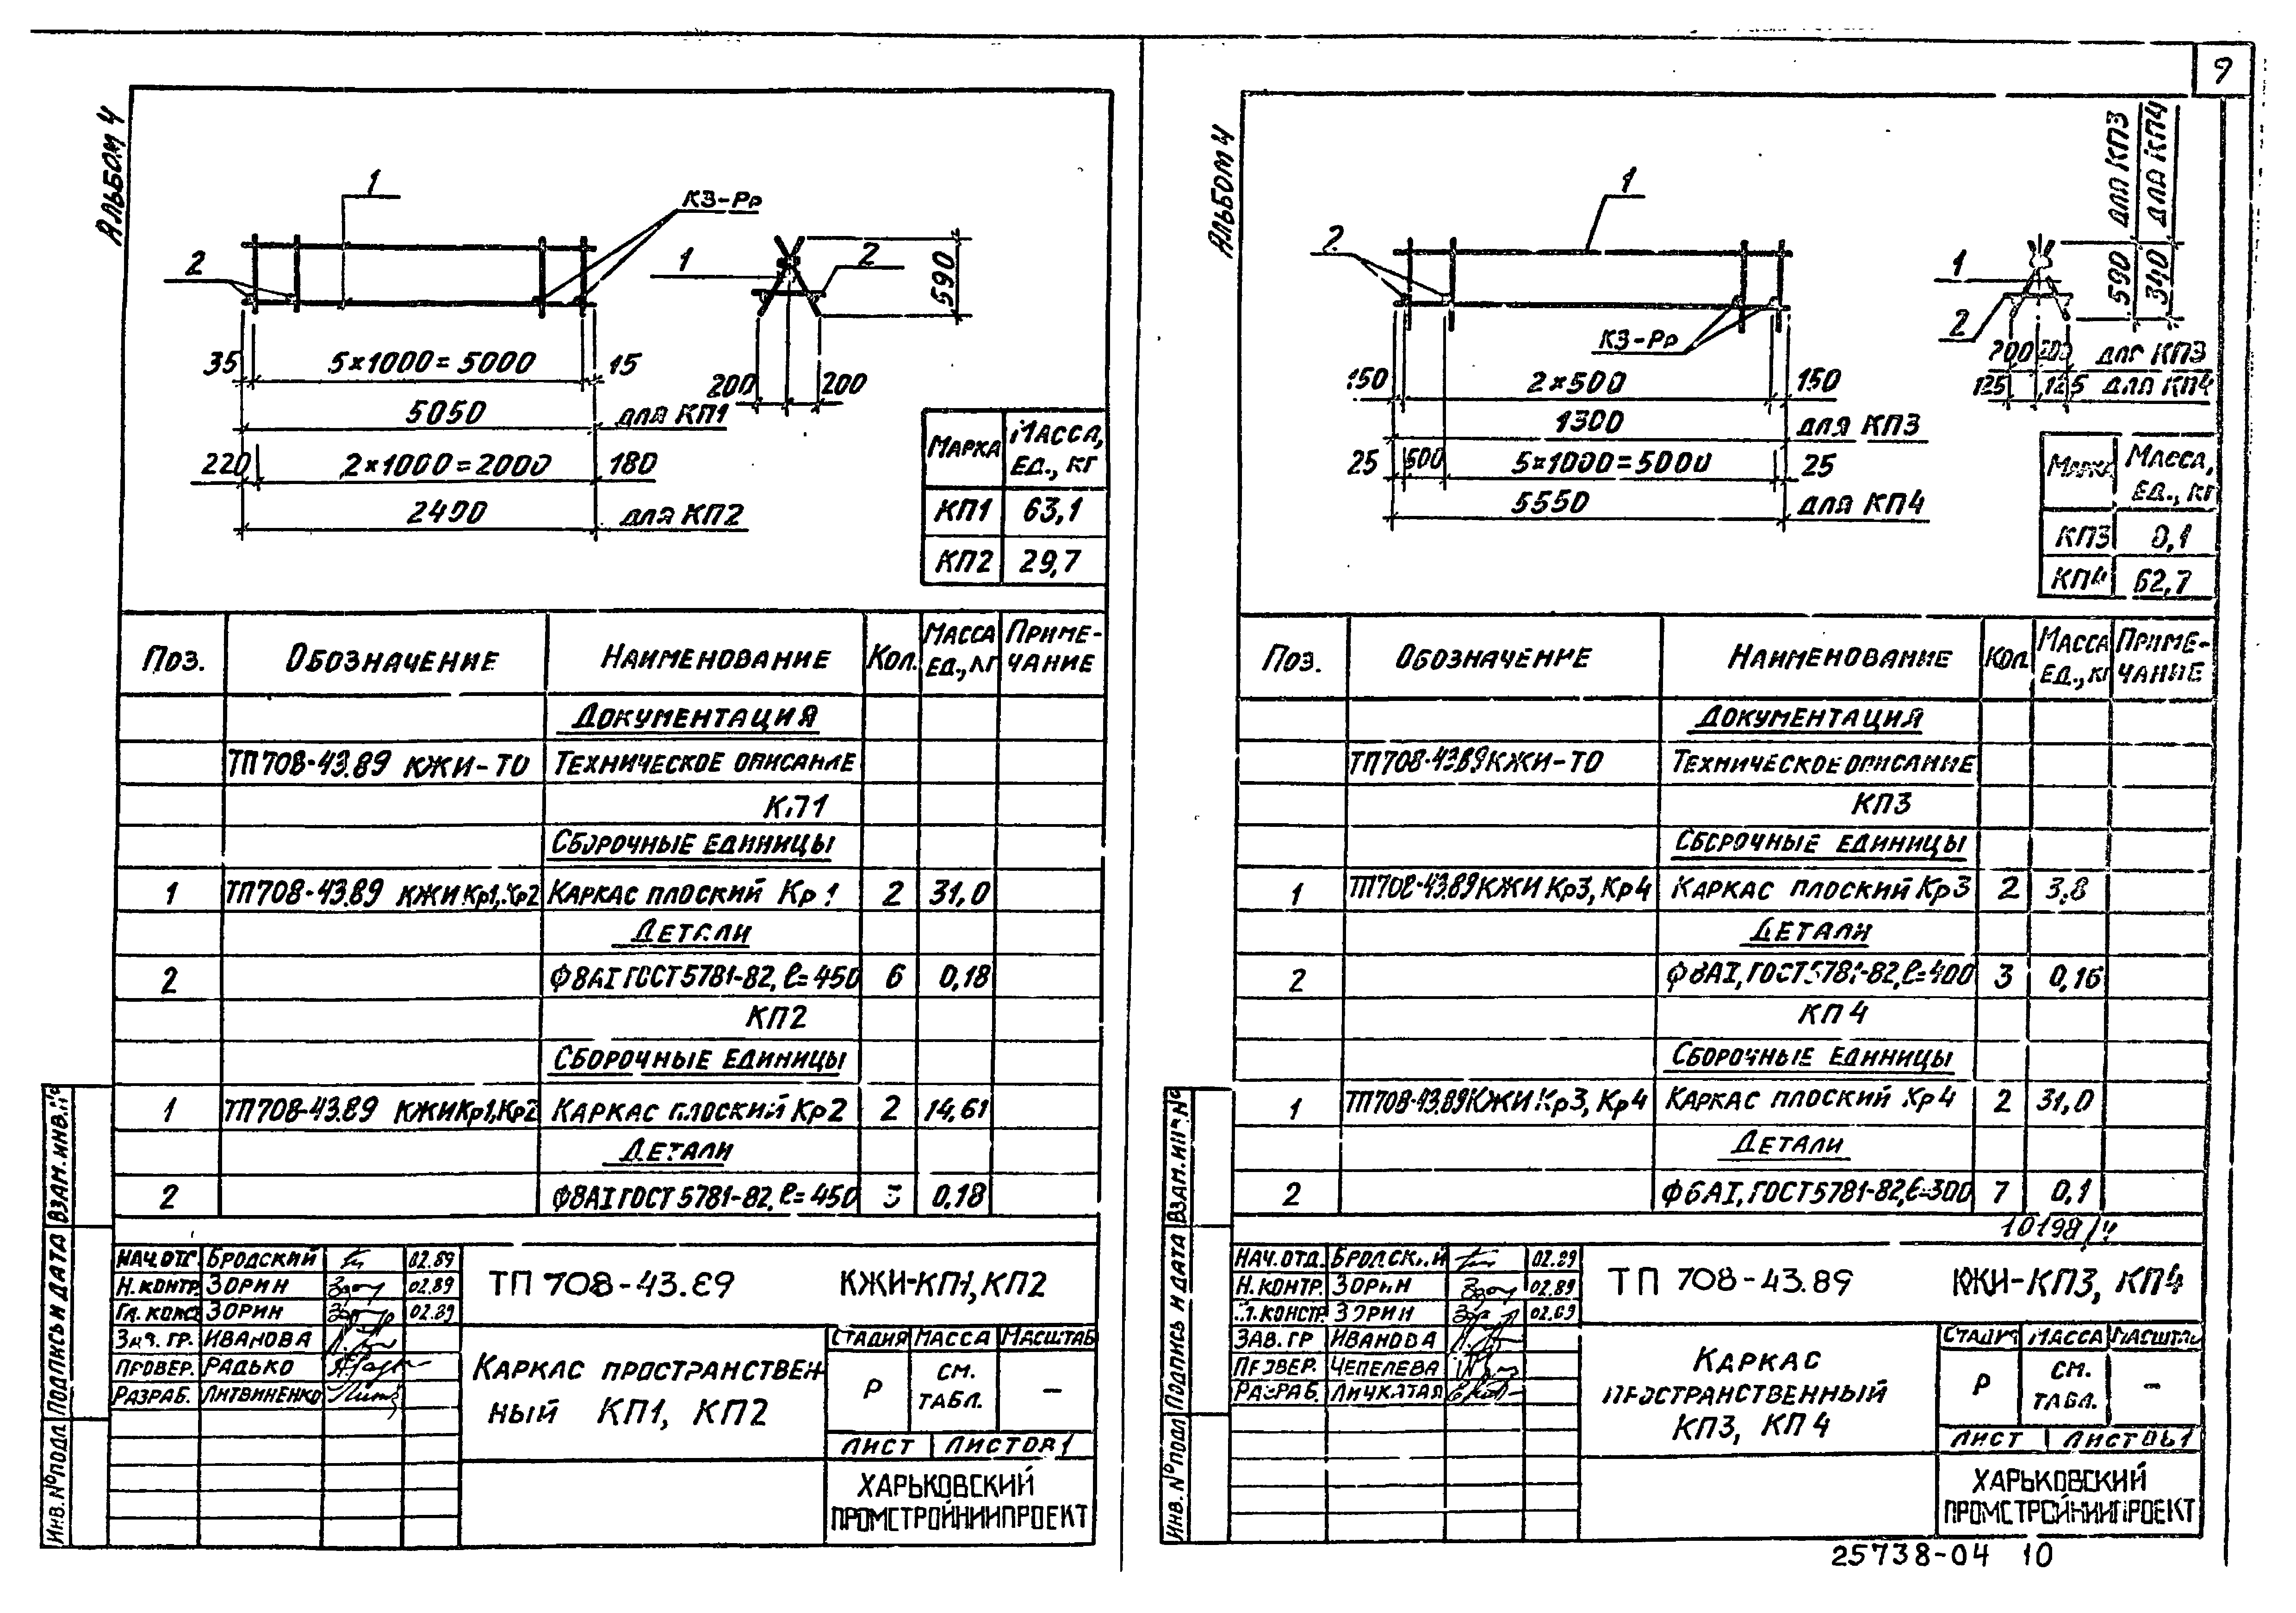 9
Альбом 4
1
КЗ-Рр
2
1
2
590
35
5×1000=5000
15
200
200
5050
для КП1
220
2×1000=2000
180
2400
для КП2
Марка
Масса, ед., кг
КП1 63,1
КП2 29,7
Поз. Обозначение Наименование Кол. Масса ед., кг Примечание
Документация
ТП 708-43.89 КЖИ-ТО Техническое описание
КП1
Сборочные единицы
1 ТП 708-43.89 КЖИ Кр1, Кр2 Каркас плоский Кр1 2 31,0
Детали
2 Ф8АІ ГОСТ 5781-82, ℓ=450 6 0,18
КП2
Сборочные единицы
1 ТП 708-43.89 КЖИ Кр1, Кр2 Каркас плоский Кр2 2 14,61
Детали
2 Ф8АІ ГОСТ 5781-82, ℓ=450 3 0,18
Нач. отд. Бродский 02.89
Н. контр. Зорин 02.89
Гл. конс. Зорин 02.89
Зав. гр. Иванова
Провер. Радько
Разраб. Литвиненко
ТП 708-43.89 КЖИ-КП1, КП2
Каркас пространствен-
ный КП1, КП2
Стадия Масса Масштаб
Р см. табл. —
Лист Листов 1
ХАРЬКОВСКИЙ
ПРОМСТРОЙНИИПРОЕКТ
Взам. инв. №
Подпись и дата
Инв. № подл
Альбом 4
1
2
КЗ-Рр
1
2
590 для КП3
340 для КП4
200 200 для КП3
125 125 для КП4
150
2×500
150
1300
для КП3
25
500
5×1000=5000
25
5550
для КП4
Марка
Масса, ед., кг
КП3 8,1
КП4 62,7
Поз. Обозначение Наименование Кол. Масса ед., кг Примечание
Документация
ТП 708-43.89 КЖИ-ТО Техническое описание
КП3
Сборочные единицы
1 ТП 708-43.89 КЖИ Кр3, Кр4 Каркас плоский Кр3 2 3,8
Детали
2 Ф8АІ, ГОСТ 5781-82, ℓ=400 3 0,16
КП4
Сборочные единицы
1 ТП 708-43.89 КЖИ Кр3, Кр4 Каркас плоский Кр4 2 31,0
Детали
2 Ф6АІ, ГОСТ 5781-82, ℓ=300 7 0,1
10198/4
Нач. отд. Бродский 02.89
Н. контр. Зорин 02.89
Гл. констр. Зорин 02.89
Зав. гр Иванова
Провер. Чепелева
Разраб. Личкатая
ТП 708-43.89 КЖИ-КП3, КП4
Каркас
пространственный
КП3, КП4
Стадия Масса Масштаб
Р см. табл. —
Лист Листов 1
ХАРЬКОВСКИЙ
ПРОМСТРОЙНИИПРОЕКТ
Взам. инв. №
Подпись и дата
Инв. № подл
25738-04 10